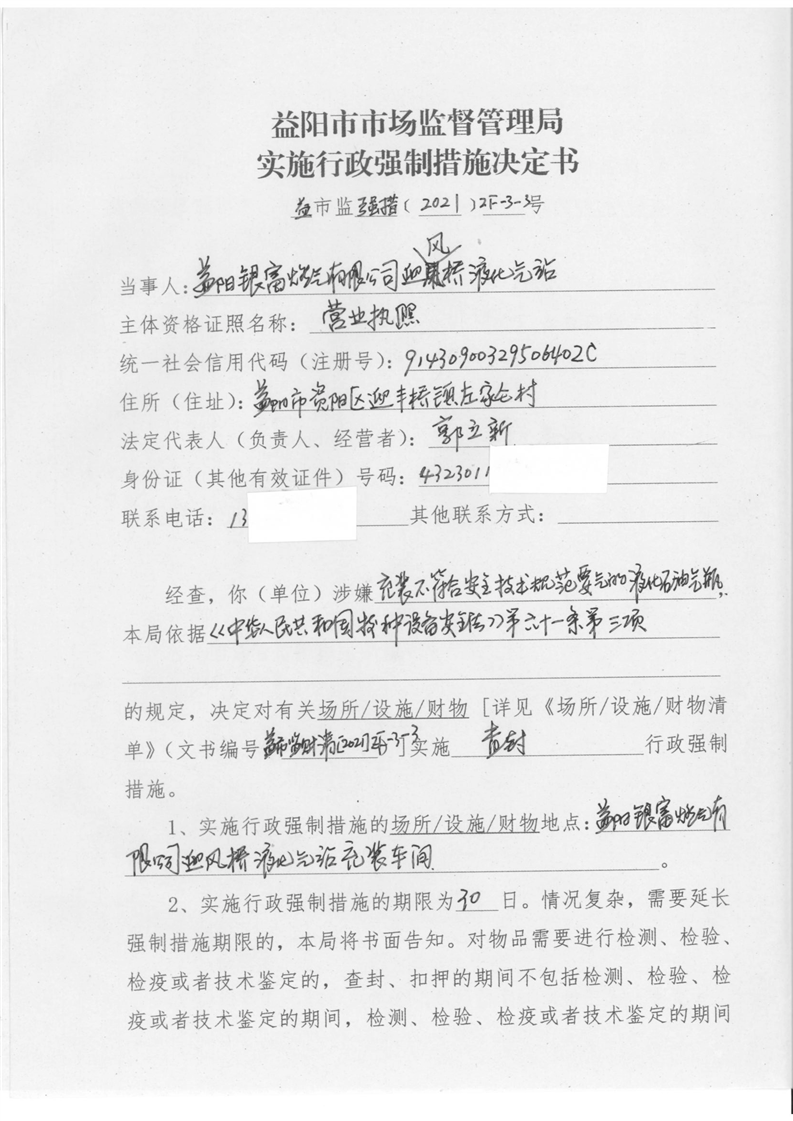 益阳市市场监督管理局
实施行政强制措施决定书
益市监强措(2021)2F-3-3号
风
当事人:益阳银富燃气有限公司迎桥液化气站
主体资格证照名称: 营业执照
统一社会信用代码(注册号):91430900329506402C
住所(住址):益阳市资阳区迎丰桥镇左家仑村
法定代表人(负责人、经营者): 郭立新
身份证(其他有效证件)号码:4323011
联系电话:13 其他联系方式:
经查,你(单位)涉嫌充装不符合安全技术规范要求的液化石油气瓶,
本局依据《中华人民共和国特种设备安全法》第六十一条第三项
的规定,决定对有关场所/设施/财物[详见《场所/设施/财物清
单》(文书编号益市监财清[2021]2F-3-3]实施 查封 行政强制
措施。
1、实施行政强制措施的场所/设施/财物地点:益阳银富燃气有
限公司迎风桥液化气站充装车间。
2、实施行政强制措施的期限为30日。情况复杂,需要延长
强制措施期限的,本局将书面告知。对物品需要进行检测、检验、
检疫或者技术鉴定的,查封、扣押的期间不包括检测、检验、检
疫或者技术鉴定的期间,检测、检验、检疫或者技术鉴定的期间